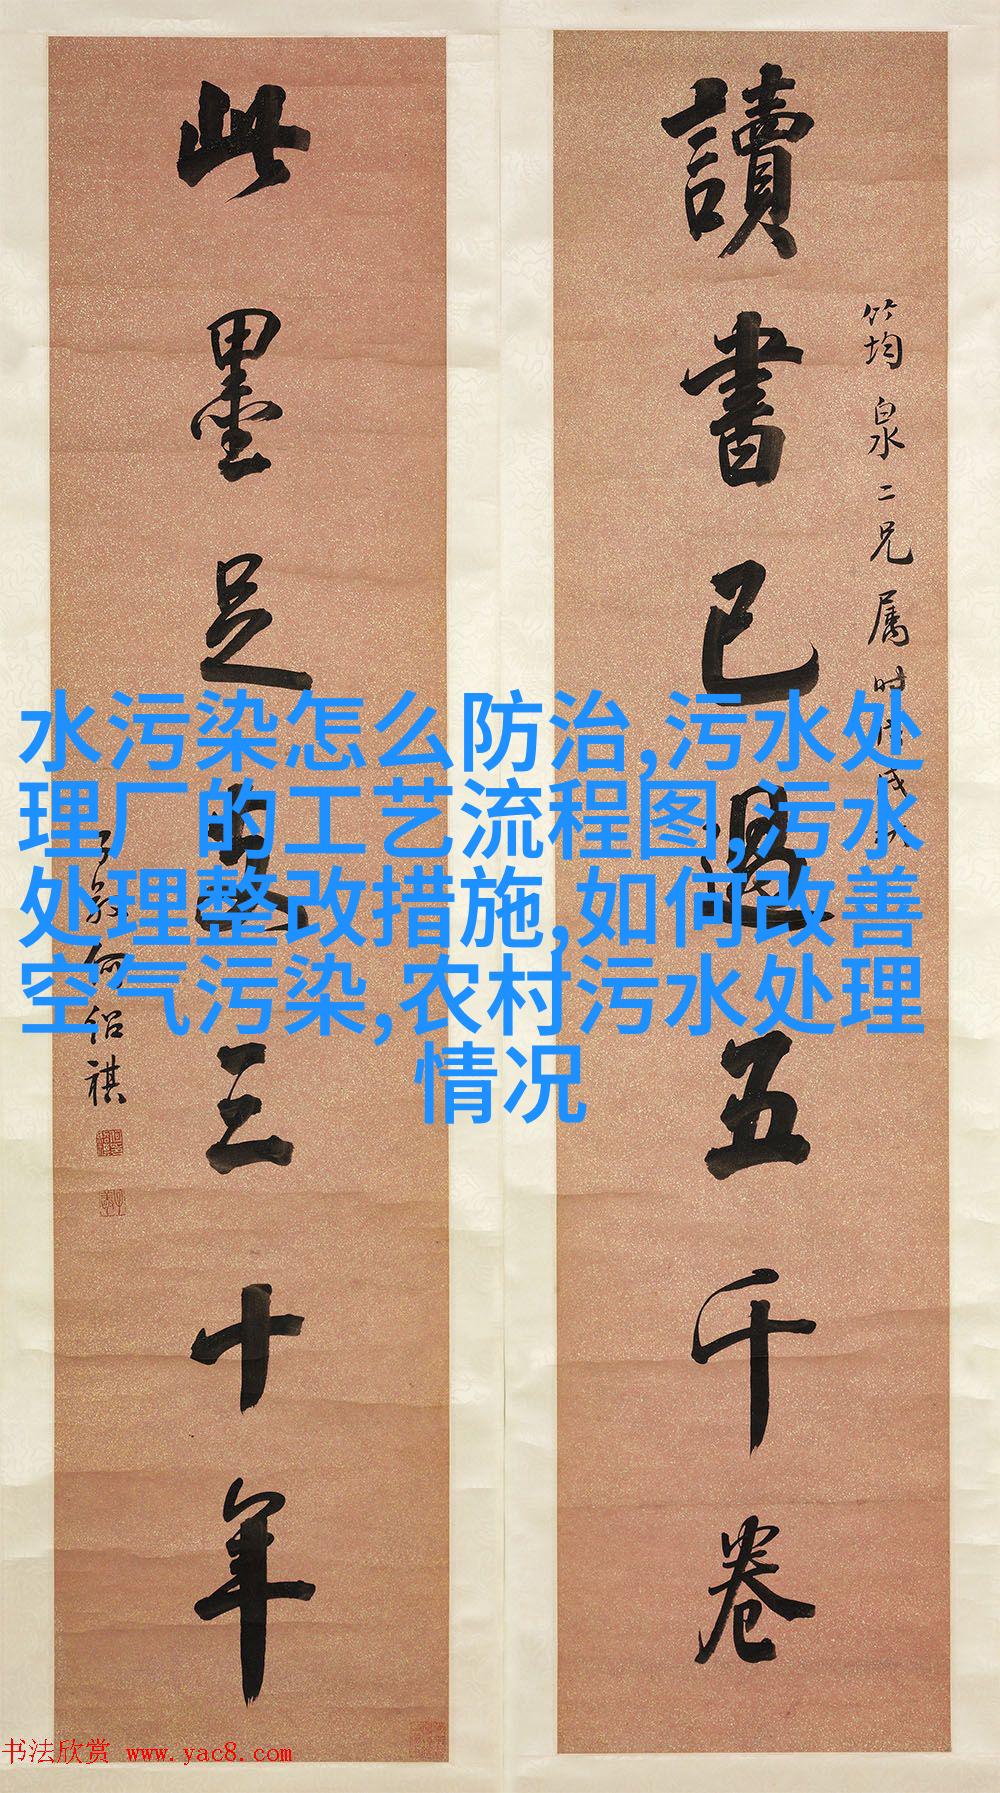 讀書已過五千卷
筠泉二兄属時戊戌
此墨足支三十年
子毅何紹祺
水污染怎么防治,污水处
理厂的工艺流程图,污水
处理整改措施,如何改善
空气污染,农村污水处理
情况
书法欣赏 www.yac8.com